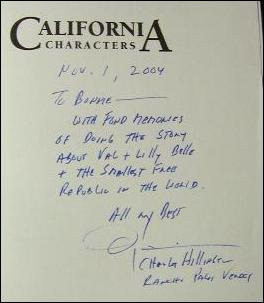 CALIFORNIA
CHARACTERS
Nov. 1, 2004
To Bonnie —
With Fond Memories
of Doing the Story
About Val + Lilly Belle
+ the Smallest Free
Republic in the World.
All my Best
Charles Hillinger
Rancho Palos Verdes